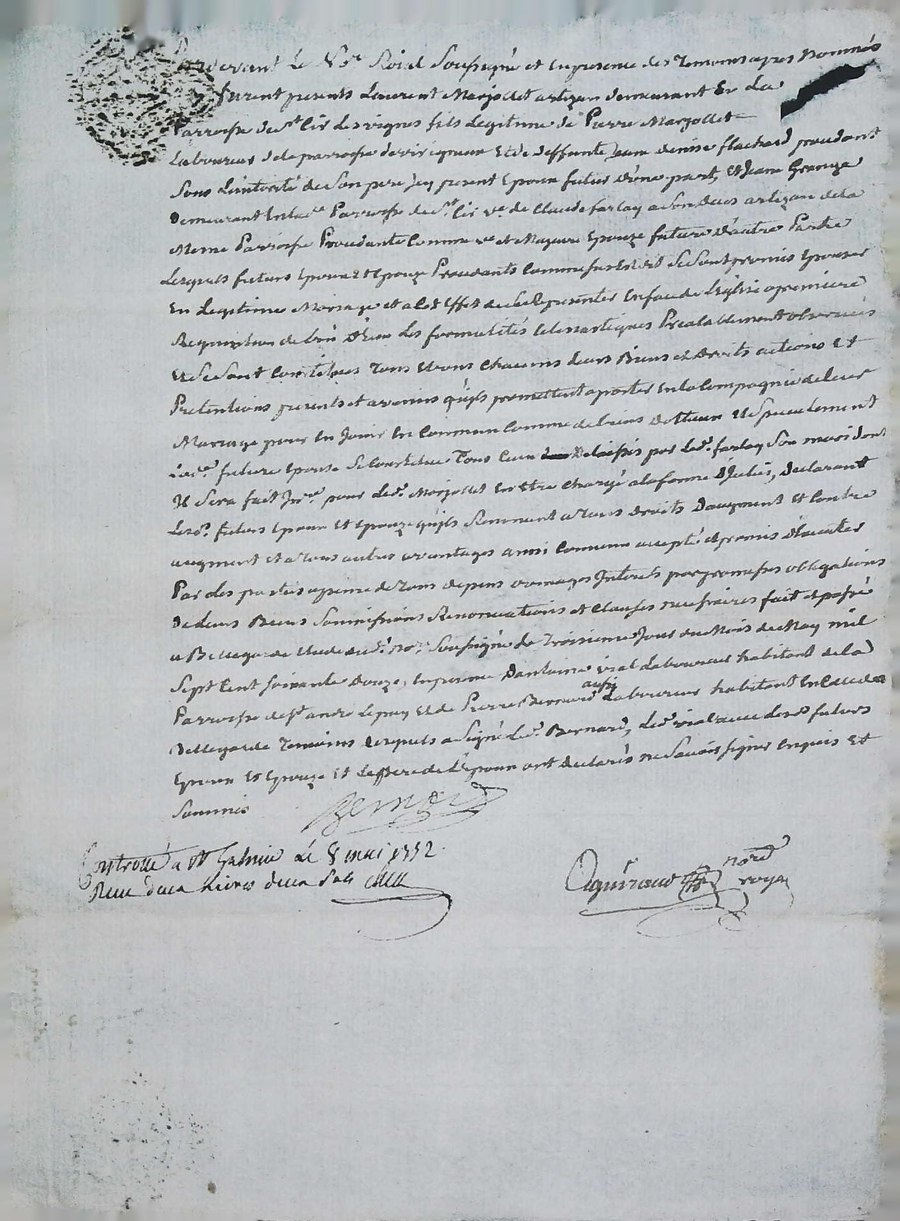 Pardevant Le Nre Roial Soussigné et en presence des Temoins apres Nommés
furent presents Laurent Marjollet artizan demeurant En La
Parroisse de St Cir les vignes fils Legitime de Pierre Marjollet
Laboureur de la parroisse de virigneux Et de deffunte Jeanne denise flachard procedant
Sous L'autorité de Son pere icy present Epoux futur d'une part, Et Jeane Grange
Demeurant En lad.e Parroisse de St Cir ve de Claude farlay a Son deces artizan de la
Meme Parroisse Procedante Comme ve et Majeure Epouze future d'autre Partie
Lesquels futurs Epoux et Epouze Procedants Comme Sus Est dit Se Sont promis Epouzer
En Legitime Mariage et a Cet Effet de Se Representer En face de L'Eglise a premiere
Requisition de L'un d'Eux Les formalités Eclesiastiques Prealablement observées
Et Se Sont Constitués Tous Et uns Chacuns Leurs Biens et Droits actions Et
Pretentions presents et avenirs qu'ils promettent aporter En la Compagnie de leur
Mariage pour En Jouir En Commun Comme de biens et Specialement
La de future Epouse Se Constitue Tous Ceux Delaissés par Led. farlay Son mari dont
Il Sera fait Inre pour Led. Marjollet En Etre Chargé a la forme Declarant
Lesd. futurs Epoux Et Epouze qu'ils Renoncent a Tous Droits D'augment Et Contre
augment et a Tous autres avantages ainsi Convenu accepté et promis
Par des parties a peine de Tous depens domages Interets par promesses obligations
De leurs Biens Soumissions Renonciations et Clauses necessaires fait et passé
a Bellegarde Etude du d. nore Soussigné Le Troisieme Jour du Mois de May mil
Sept Cent Soixante Douze, En presence D'antoine vial Laboureur habitant de la
Parroisse de St andré Lepuy Et de Pierre Bernard aussi Laboureur habitant En Celle de
Bellegarde Temoins Lesquels a Signé Led. Bernard, Led. vial avec Lesd. futurs
Epoux Et Epouze Et Le Pere de L'Epoux ont declarés ne Savoir Signer enquis Et
Sommés
Bernard
Controllé a St Galmier Le 8 mai 1772.
Reçu
nore
royal